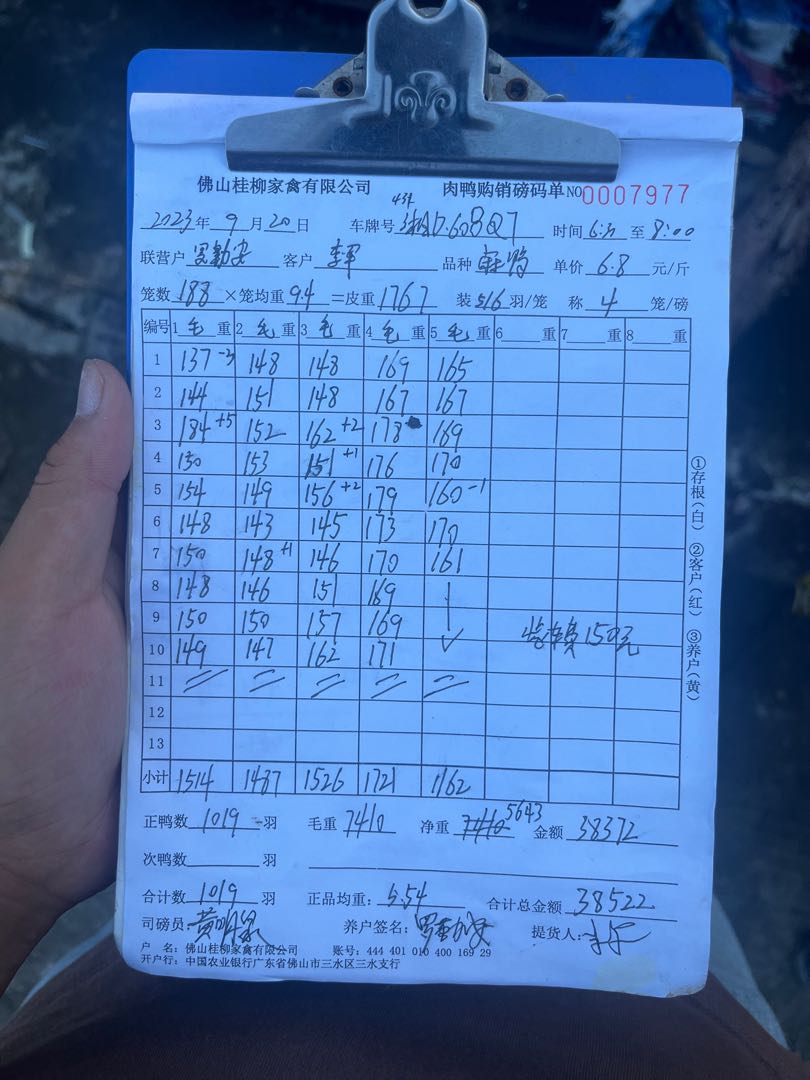 佛山桂柳家禽有限公司 肉鸭购销磅码单 NO 0007977
2023年9月20日 车牌号 时间 至 8:00
联营户 客户 李军 品种 单价 6.8 元/斤
笼数 188 ×笼均重 9.4 =皮重 1767 装 5/6 羽/笼 称 4 笼/磅
编号 1 毛 重 2 毛 重 3 毛 重 4 毛 重 5 毛 重 6 重 7 重 8 重
1 137 -3 148 148 169 165
2 144 151 148 167 167
3 184 +5 152 162 +2 178 169
4 150 153 151 +1 176 170
5 154 149 156 +2 179 160 -1
6 148 143 145 173 170
7 150 148 +1 146 170 161
8 148 146 151 169
9 150 150 157 169
150元
10 149 147 162 171
11
12
13
小计 1514 1487 1526 1721 1162
①存根(白) ②客户(红) ③养户(黄)
正鸭数 1019 羽 毛重 7410 净重 7410 5643 金额 38372
次鸭数 羽
合计数 1019 羽 正品均重: 5.54 合计总金额 38522
司磅员: 养户签名: 提货人:
户 名: 佛山桂柳家禽有限公司 账号: 444 401 010 400 169 29
开户行: 中国农业银行广东省佛山市三水区三水支行